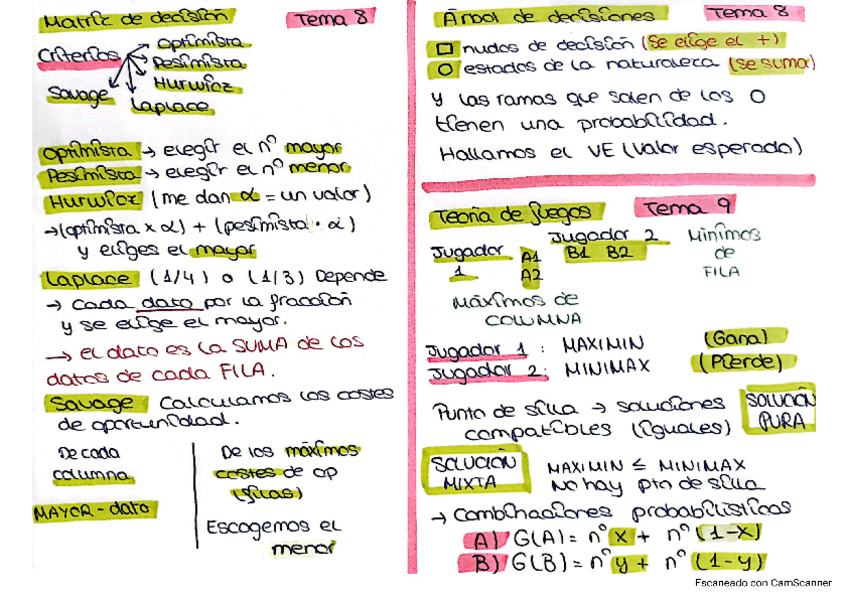 Matriz de decisión
Tema 8
Criterios
Optimista
Pesimista
Hurwicz
Laplace
Savage
Optimista → elegir el nº mayor
Pesimista → elegir el nº menor
Hurwicz (me dan α = un valor)
→ (optimista x α) + (pesimista · α)
y eliges el mayor
Laplace (1/4) o (1/3) Depende
→ Cada dato por la fracción
y se elige el mayor.
→ el dato es la SUMA de los
datos de cada FILA.
Savage Calculamos los costes
de oportunidad.
De cada
columna
MAYOR - dato
De los máximos
costes de op
(filas)
Escogemos el
menor
Árbol de decisiones
Tema 8
□ nudos de decisión (se elige el +)
○ estados de la naturaleza (se suma)
y las ramas que salen de los O
tienen una probabilidad.
Hallamos el VE (valor esperado)
Teoría de juegos
Tema 9
Jugador 1
A1
A2
Jugador 2
B1 B2
Mínimos
de
FILA
Máximos de
COLUMNA
Jugador 1 : MAXIMIN (Gana)
Jugador 2: MINIMAX (Pierde)
Punto de silla → soluciones
compatibles (iguales)
SOLUCIÓN
PURA
SOLUCIÓN
MIXTA
MAXIMIN ≤ MINIMAX
No hay pto de silla
→ Combinaciones probabilísticas
A) G(A) = nº x + nº (1-x)
B) G(B) = nº y + nº (1-y)
Escaneado con CamScanner